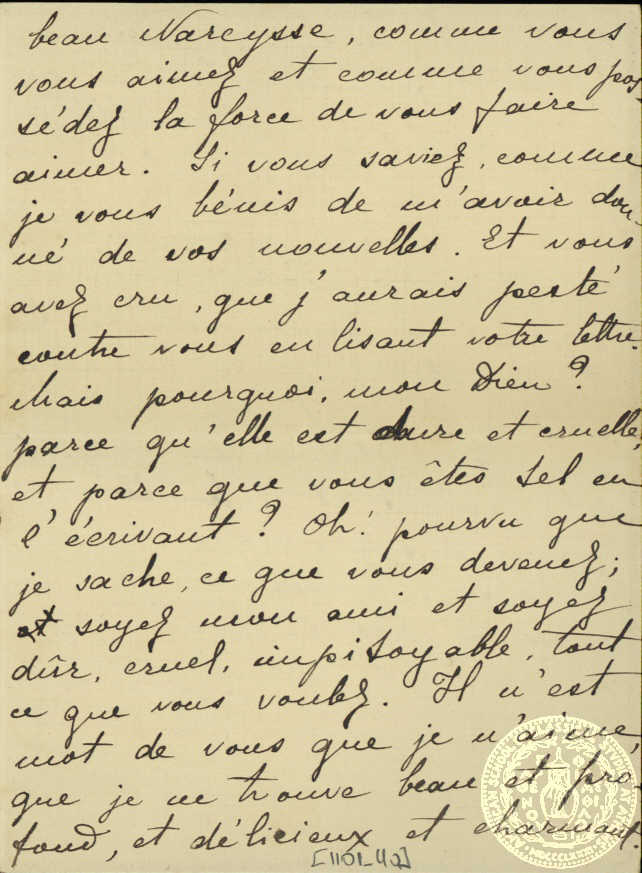 beau Narcysse, comme vous
vous aimez et comme vous pos-
sédez la force de vous faire
aimer. Si vous saviez, comme
je vous bénis de m'avoir don-
né de vos nouvelles. Et vous
avez cru, que j'aurais pesté
contre vous en lisant votre lettre.
Mais pourquoi, mon Dieu?
parce qu'elle est dure et cruelle,
et parce que vous êtes tel en
l'écrivant? Oh! pourvu que
je sache, ce que vous devenez;
et soyez mon ami et soyez
dûr, cruel, impitoyable, tout
ce que vous voulez. Il n'est
mot de vous que je n'aime,
que je ne trouve beau et pro-
fond, et délicieux et charmant.
[1101_42]